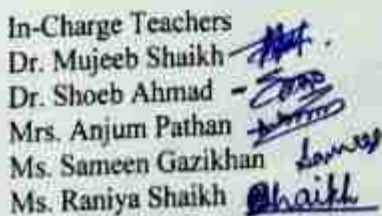 In-Charge Teachers
Dr. Mujeeb Shaikh
Dr. Shoeb Ahmad -
Mrs. Anjum Pathan
Ms. Sameen Gazikhan
Ms. Raniya Shaikh Shaikh